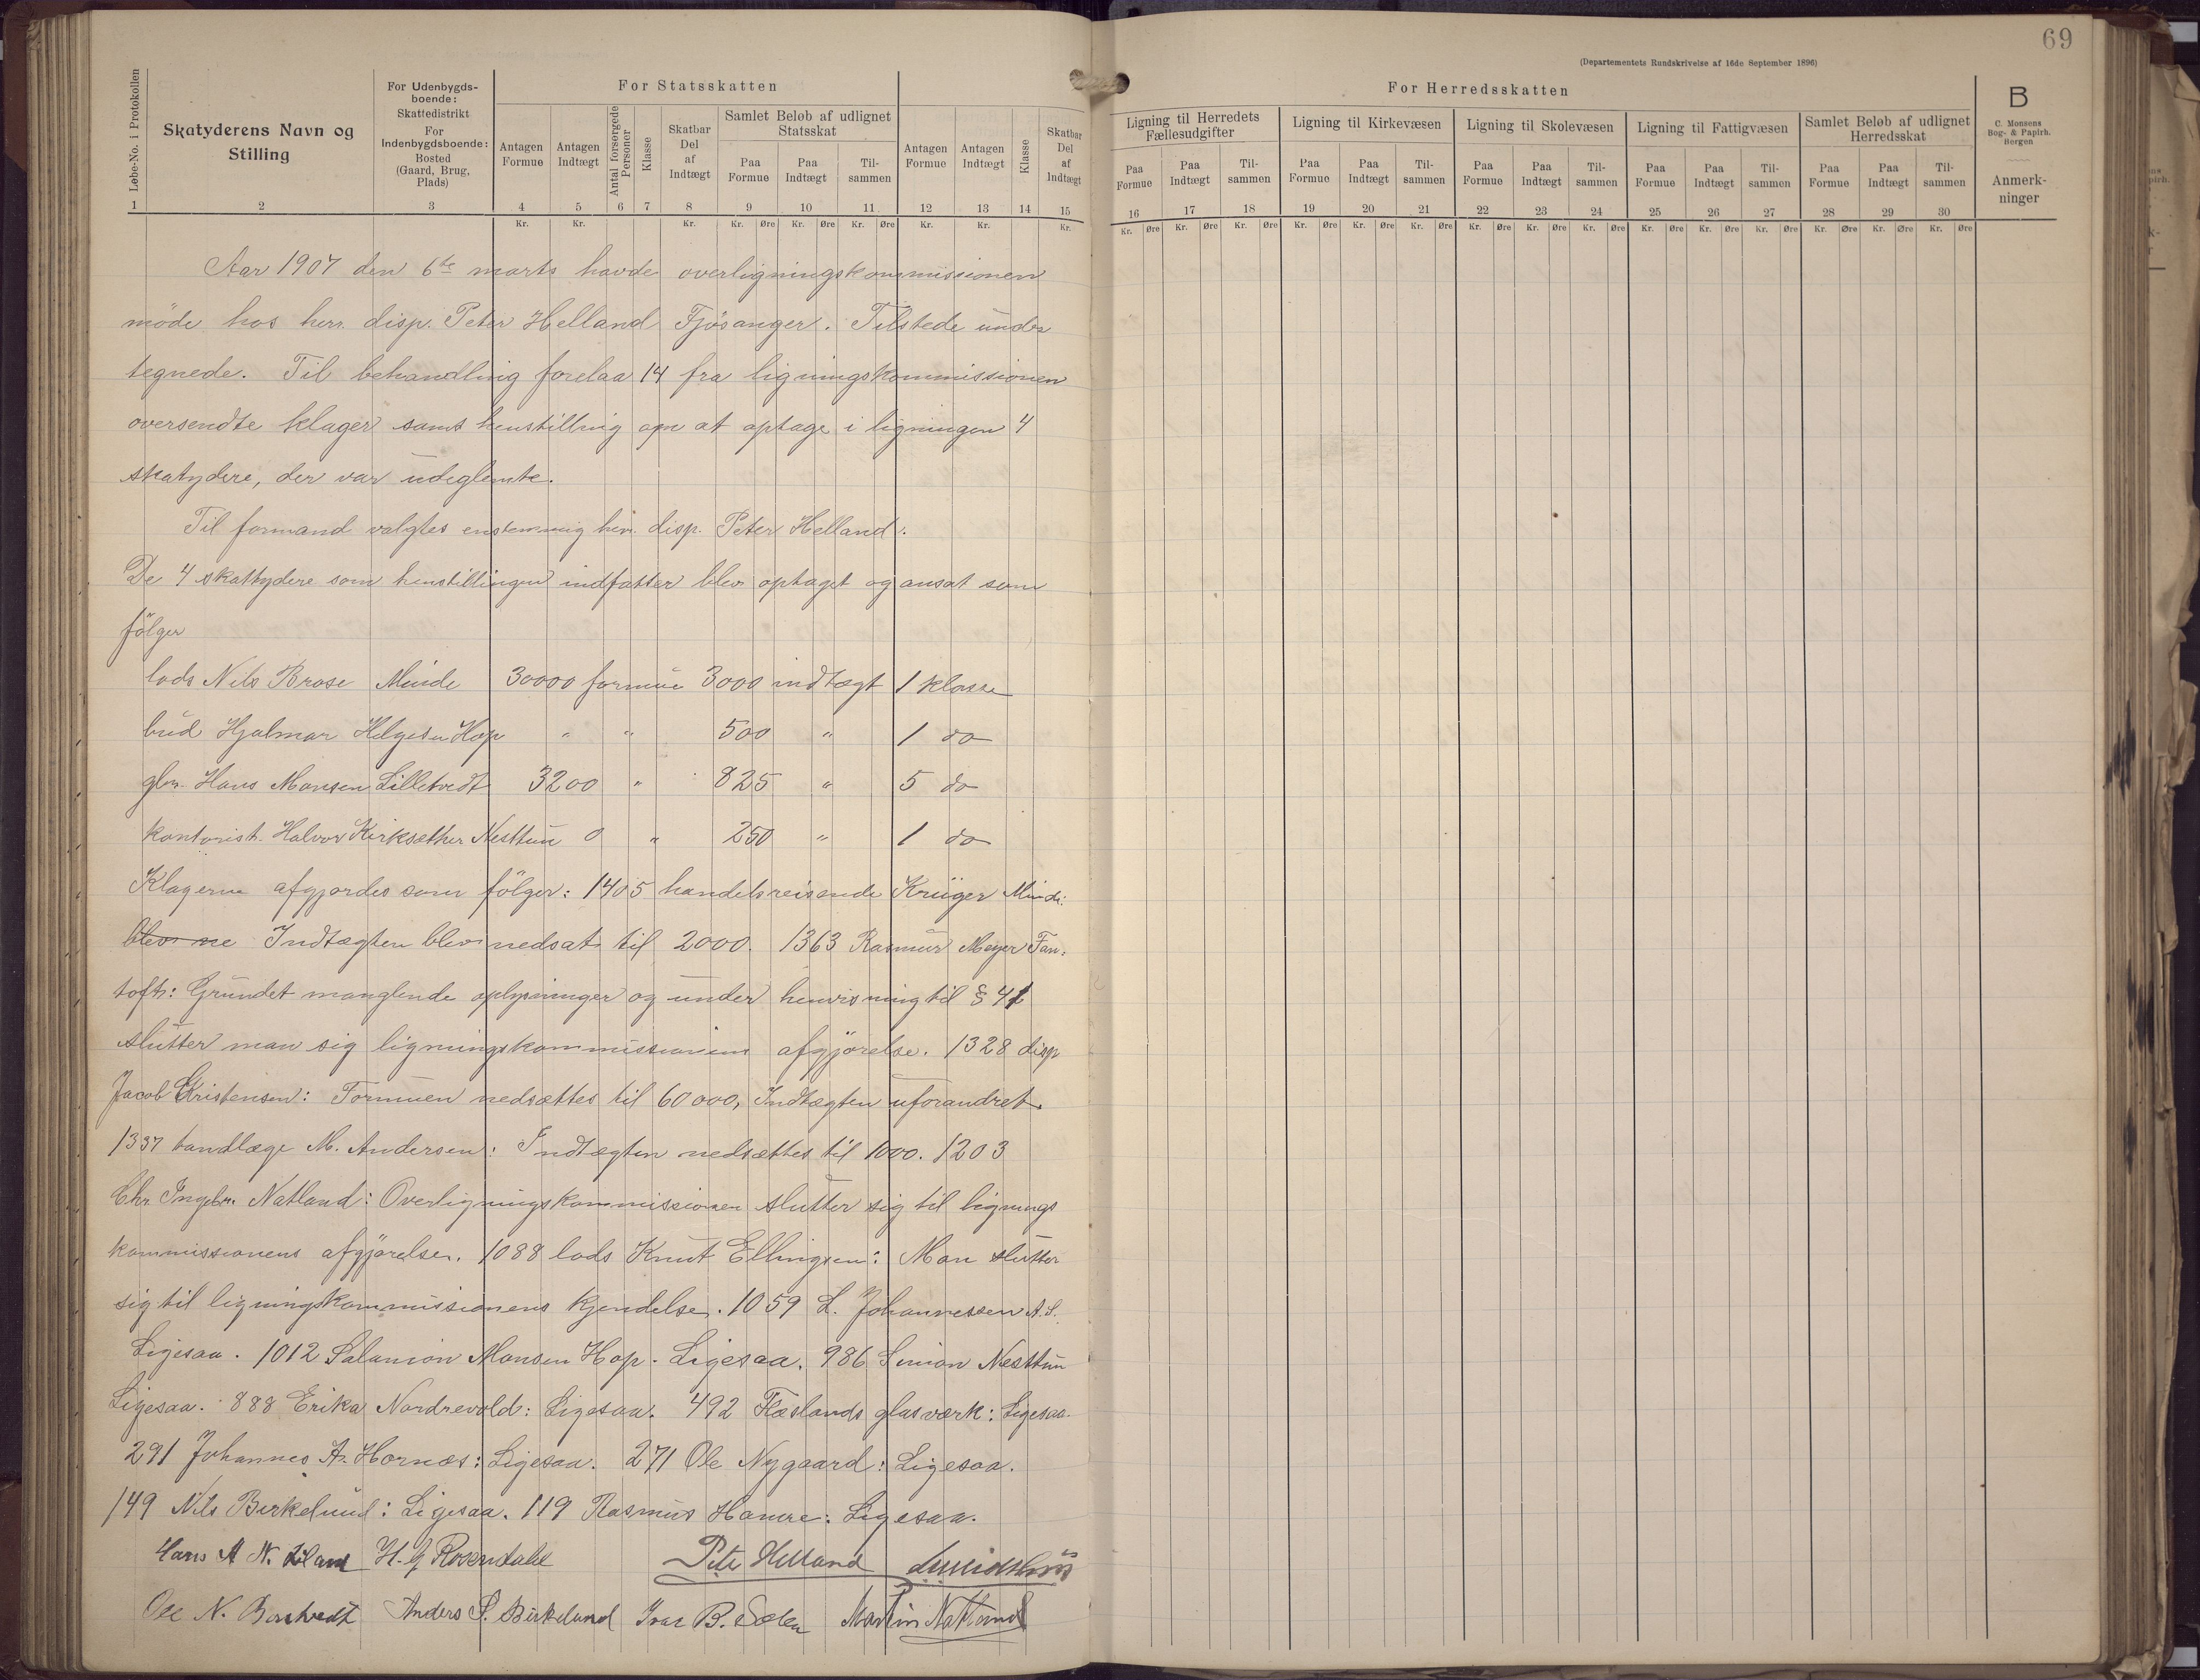 69
(Departementets Rundskrivelse af 16de September 1896)
Løbe-No. i Protokollen
Skatyderens Navn og Stilling
For Udenbygds-boende: Skattedistrikt For Indenbygdsboende: Bosted (Gaard, Brug, Plads)
For Statsskatten
Antagen Formue
Antagen Indtægt
Antal forsørgede Personer
Klasse
Skatbar Del af Indtægt
Samlet Beløb af udlignet Statsskat
Paa Formue
Paa Indtægt
Til-sammen
Antagen Formue
Antagen Indtægt
Klasse
Skatbar Del af Indtægt
For Herredsskatten
Ligning til Herredets Fællesudgifter
Ligning til Kirkevæsen
Ligning til Skolevæsen
Ligning til Fattigvæsen
Samlet Beløb af udlignet Herredsskat
Paa Formue Paa Indtægt Til-sammen
Paa Formue Paa Indtægt Til-sammen
Paa Formue Paa Indtægt Til-sammen
Paa Formue Paa Indtægt Til-sammen
Paa Formue Paa Indtægt Til-sammen
B
C. Monsens
Bog- & Papirh.
Bergen
Anmerk-
ninger
1 2 3 4 5 6 7 8 9 10 11 12 13 14 15 16 17 18 19 20 21 22 23 24 25 26 27 28 29 30
Kr. Kr. Kr. Kr. Øre Kr. Øre Kr. Øre Kr. Kr. Kr. Kr. Øre Kr. Øre Kr. Øre Kr. Øre Kr. Øre Kr. Øre Kr. Øre Kr. Øre Kr. Øre Kr. Øre Kr. Øre Kr. Øre Kr. Øre Kr. Øre Kr. Øre
Aar 1907 den 6te marts havde overligningskommissionen
möde hos herr. disp. Peter Helland Fjösanger. Tilstede under
tegnede. Til behandling forelaa 14 fra ligningskommissionen
oversendte klager samt henstilling om at optage i ligningen 4
skatydere, der var udeglemte.
Til formand valgtes enstemmig herr. disp. Peter Helland.
De 4 skattydere som henstillingen indfatter blev optaget og ansat som
fölger
lods Nils Brose Minde 30000 formue 3000 indtægt 1 klasse
bud Hjalmar Helgesen Hop " " 500 " 1 do
gbr. Hans Monsen Lilletvedt 3200 " 825 " 5 do
kontorist. Halvor Kirksæther Nesttun 0 " 250 " 1 do
Klagerne afgjordes som fölger: 1405 handelsreisende Krüger Minde:
blev ne Indtægten blev nedsat til 2000. 1363 Rasmus Meyer Fan-
toft: Grundet manglende oplysninger og under henvisning til § 41
slutter man sig ligningskommissionens afgjörelse. 1328 disp
Jacob Kristensen: Formuen nedsættes til 60000, Indtægten uforandret.
1337 tandlæge M. Andersen: Indtægten nedsættes til 1000. 1203
Chr. Ingebr. Natland: Overligningskommissionen slutter sig til lignings
kommissionens afgjörelse. 1088 lods Knut Ellingsen: Man slutter
sig til ligningskommissionens kjendelse. 1059 L. Johannessen A.S.
Ligesaa. 1012 Salamon Monsen Hop. Ligesaa. 986 Simon Nesttun
Ligesaa. 888 Erika Nordrevold: Ligesaa. 492 Flæslands glasværk: Ligesaa.
291 Johannes A. Hornæs: Ligesaa. 271 Ole Nygaard: Ligesaa.
149 Nils Birkelund: Ligesaa. 119 Rasmus Hamre: Ligesaa.
Hans A N. H. G Rosendahl Peter Helland
Ole N. Anders S. Birkelund Ivar B. Sælen Martin Natland